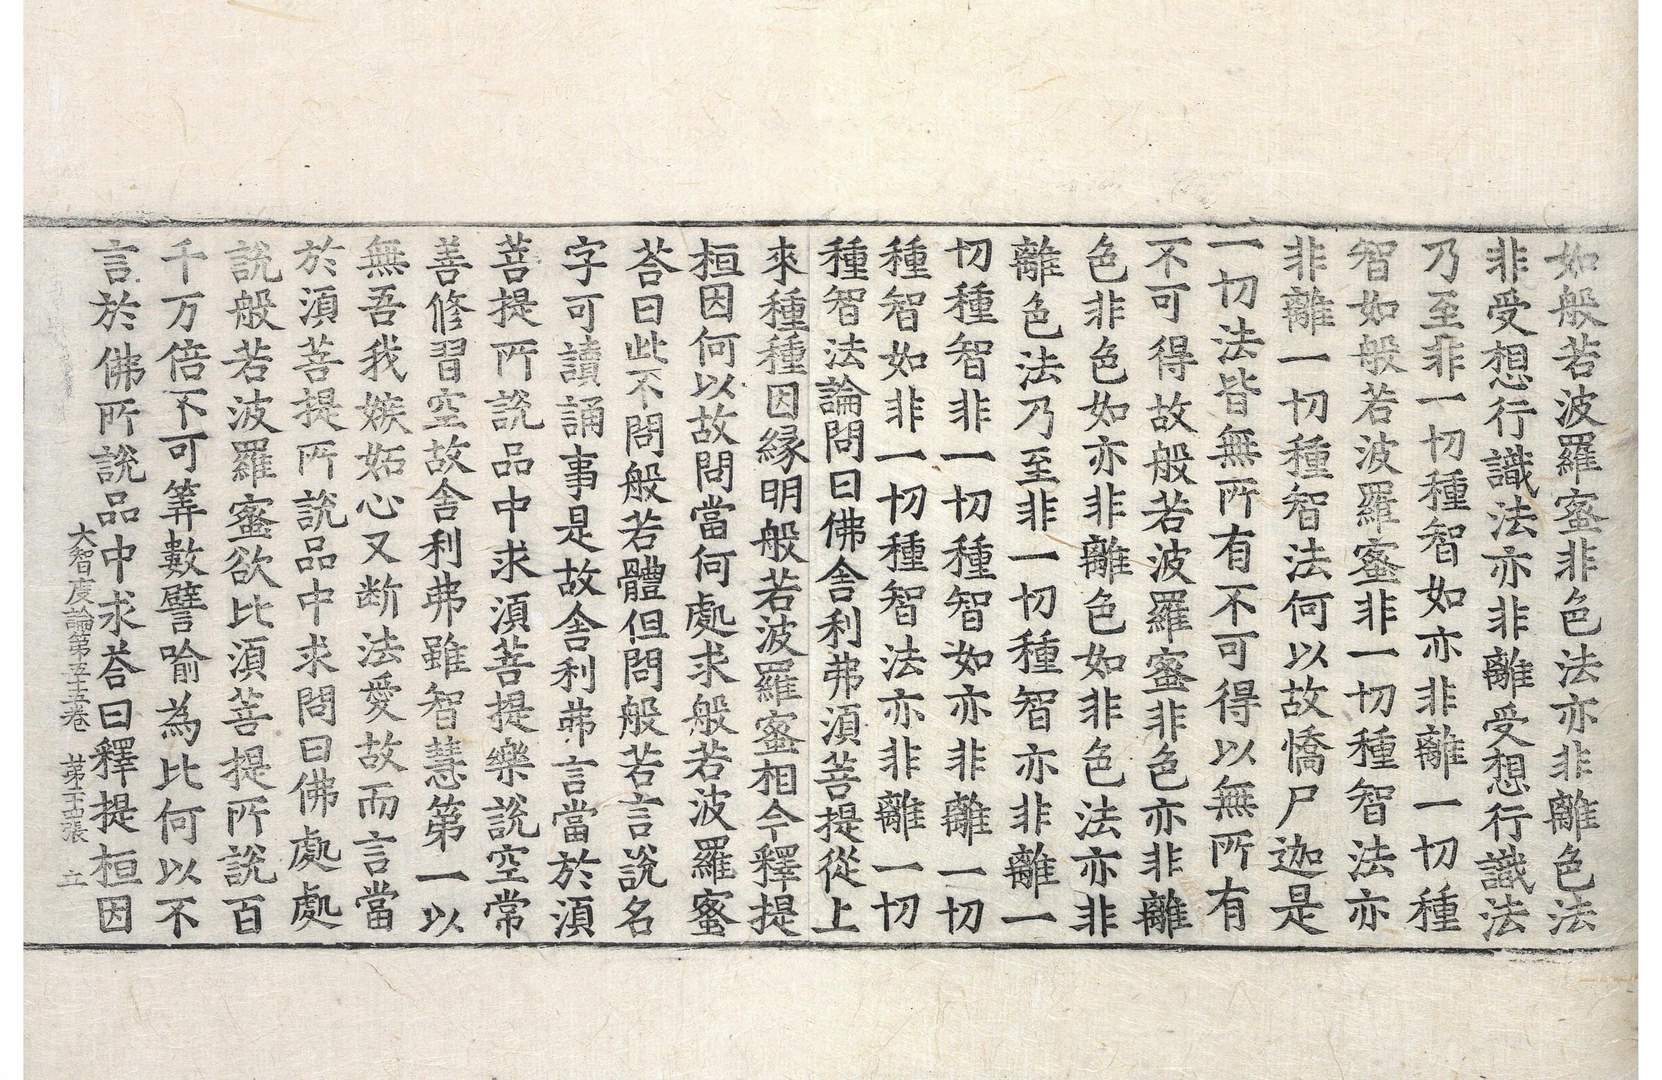 如般若波羅蜜非色法亦非離色法
非受想行識法亦非離受想行識法
乃至非一切種智如亦非離一切種
智如般若波羅蜜非一切種智法亦
非離一切種智法何以故憍尸迦是
一切法皆無所有不可得以無所有
不可得故般若波羅蜜非色亦非離
色非色如亦非離色如非色法亦非
離色法乃至非一切種智亦非離一
切種智非一切種智如亦非離一切
種智如非一切種智法亦非離一切
種智法論問曰佛舍利弗須菩提從上
來種種因緣明般若波羅蜜相今釋提
桓因何以故問當何處求般若波羅蜜
荅曰此不問般若體但問般若言說名
字可讀誦事是故舍利弗言當於須
菩提所說品中求須菩提樂說空常
善修習空故舍利弗雖智慧第一以
無吾我嫉妬心又断法愛故而言當
於須菩提所說品中求問曰佛處處
說般若波羅蜜欲比須菩提所說百
千万倍不可筭數譬喻為比何以不
言於佛所說品中求荅曰釋提桓因
大智度論第五十五卷 第十五張 立